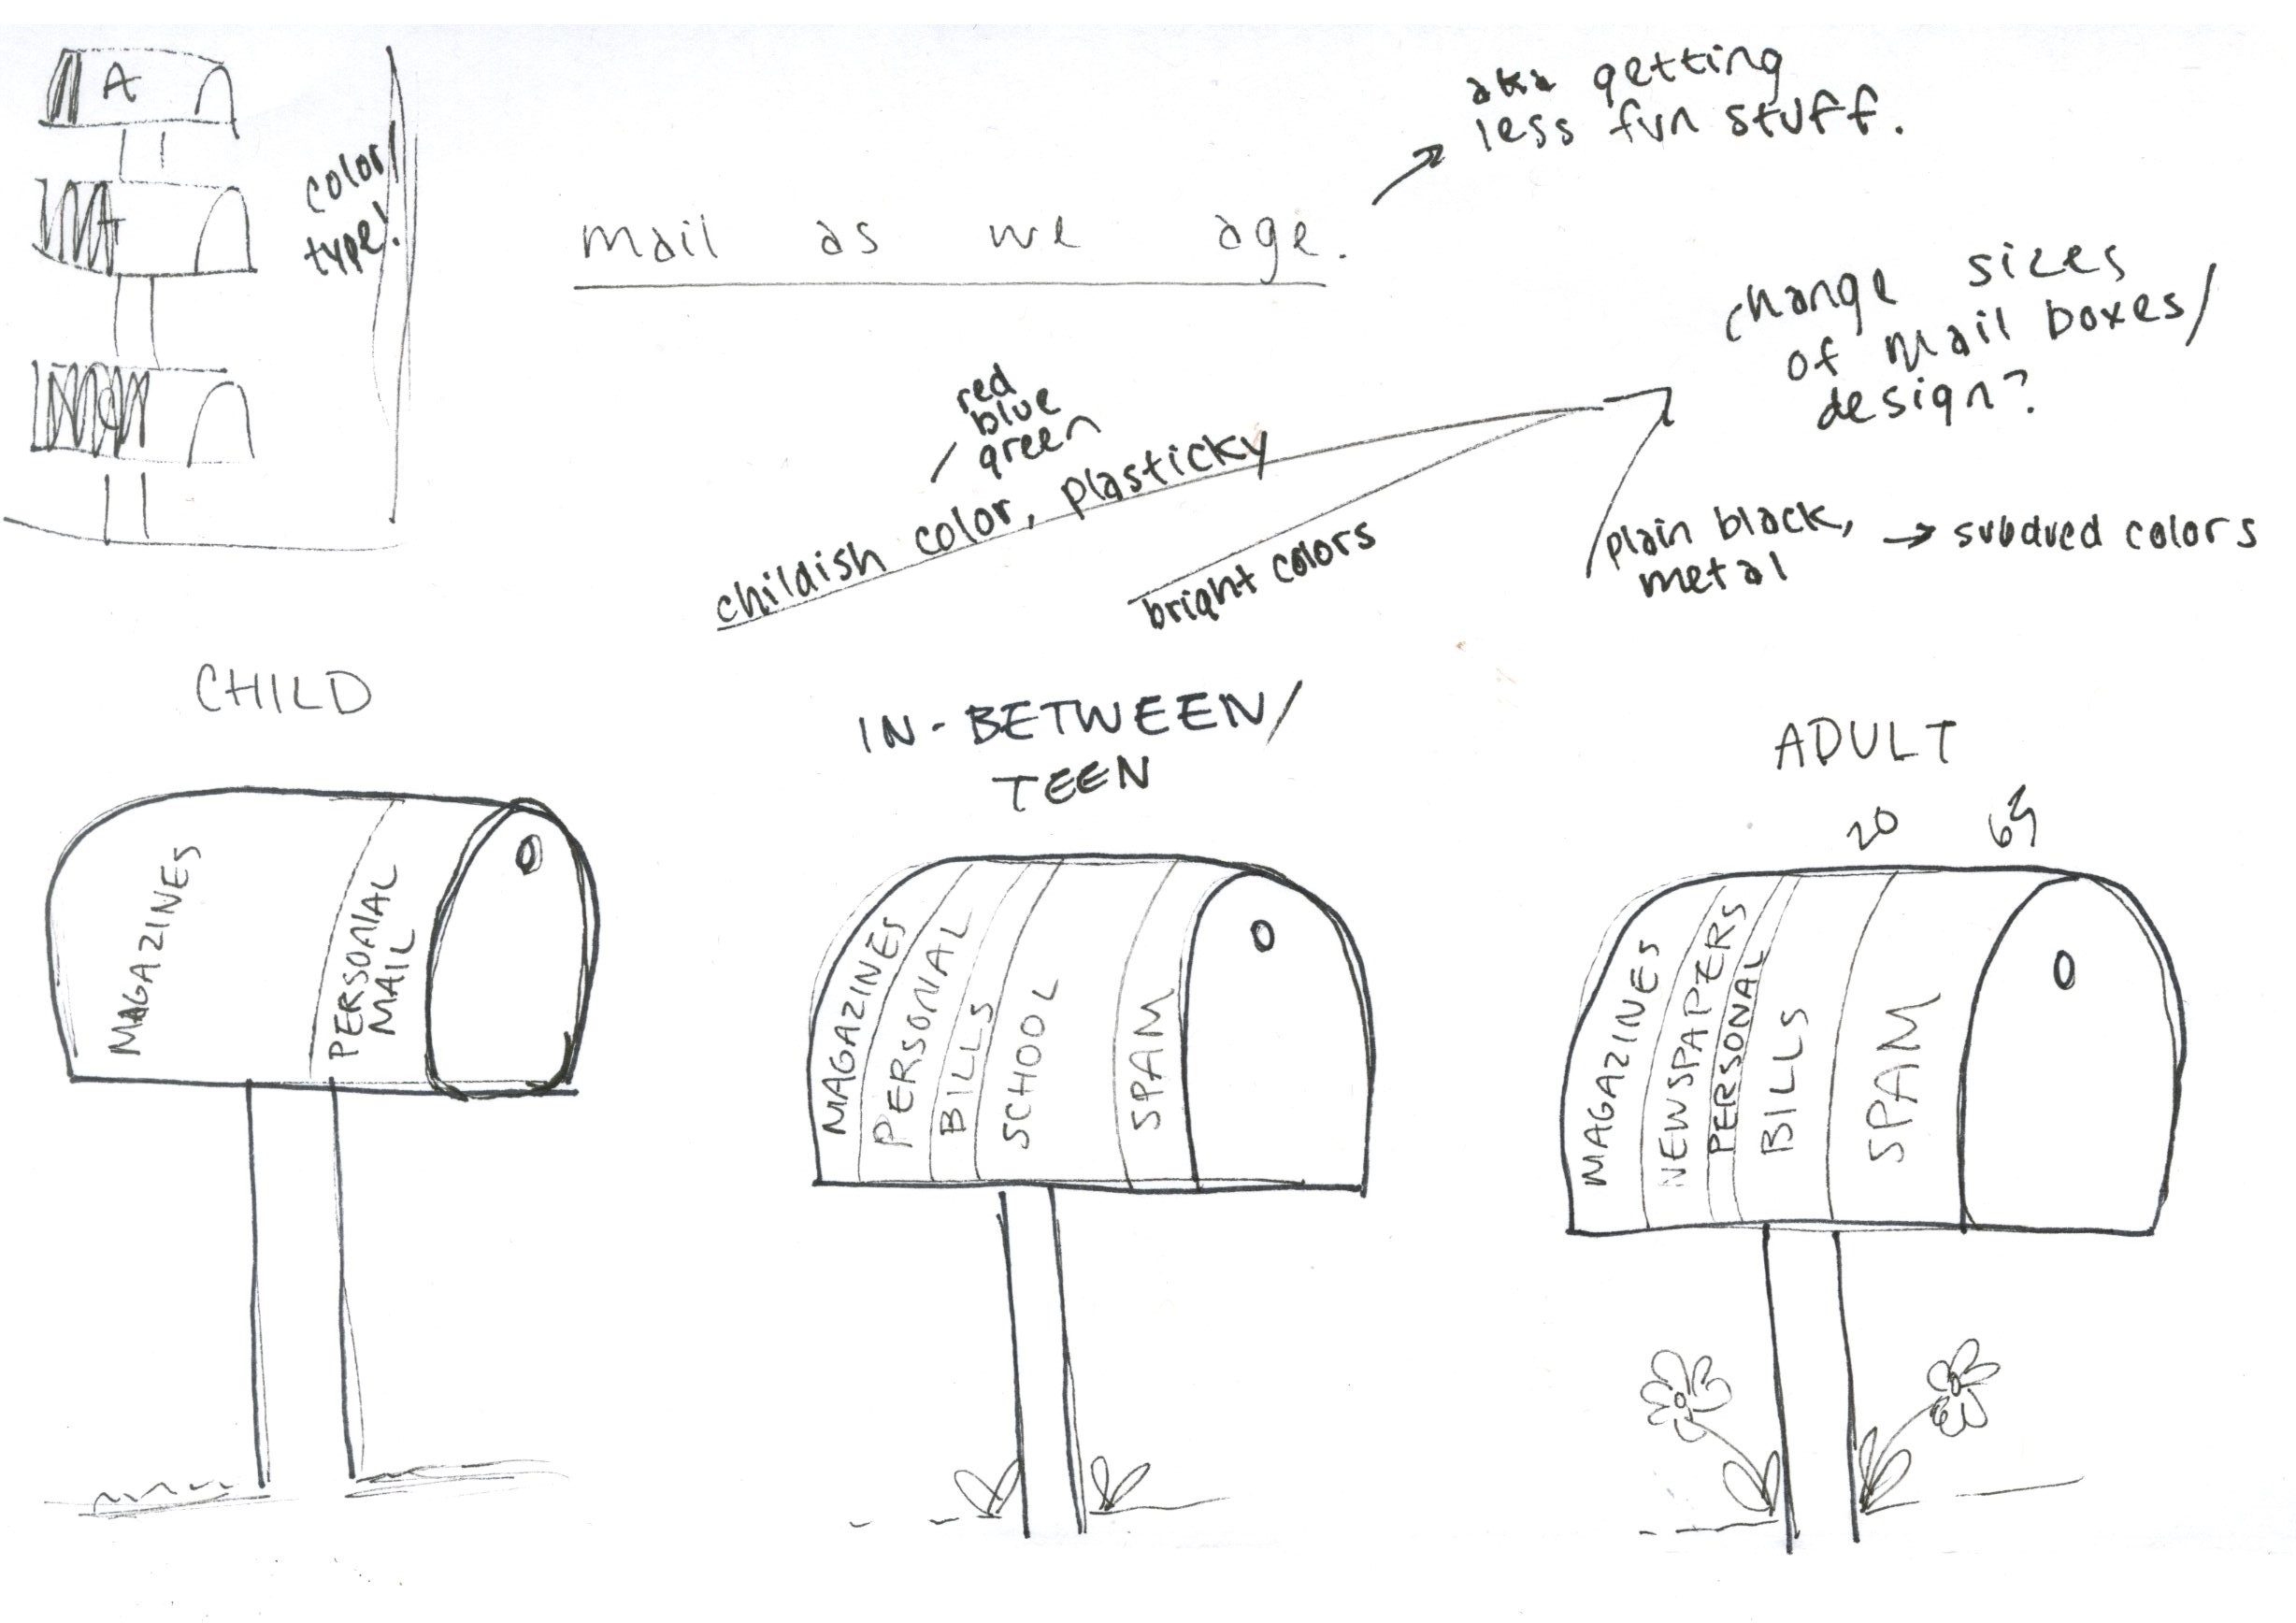 A
color!
type!
mail as we age.
aka getting
less fun stuff.
change sizes
of mail boxes/
design?
red
blue
green
childish color, plasticky
bright colors
plain black, → subdued colors
metal
CHILD
IN-BETWEEN/
TEEN
ADULT
20
MAGAZINES
PERSONAL
MAIL
MAGAZINES
PERSONAL
BILLS
SCHOOL
SPAM
MAGAZINES
NEWSPAPERS
PERSONAL
BILLS
SPAM